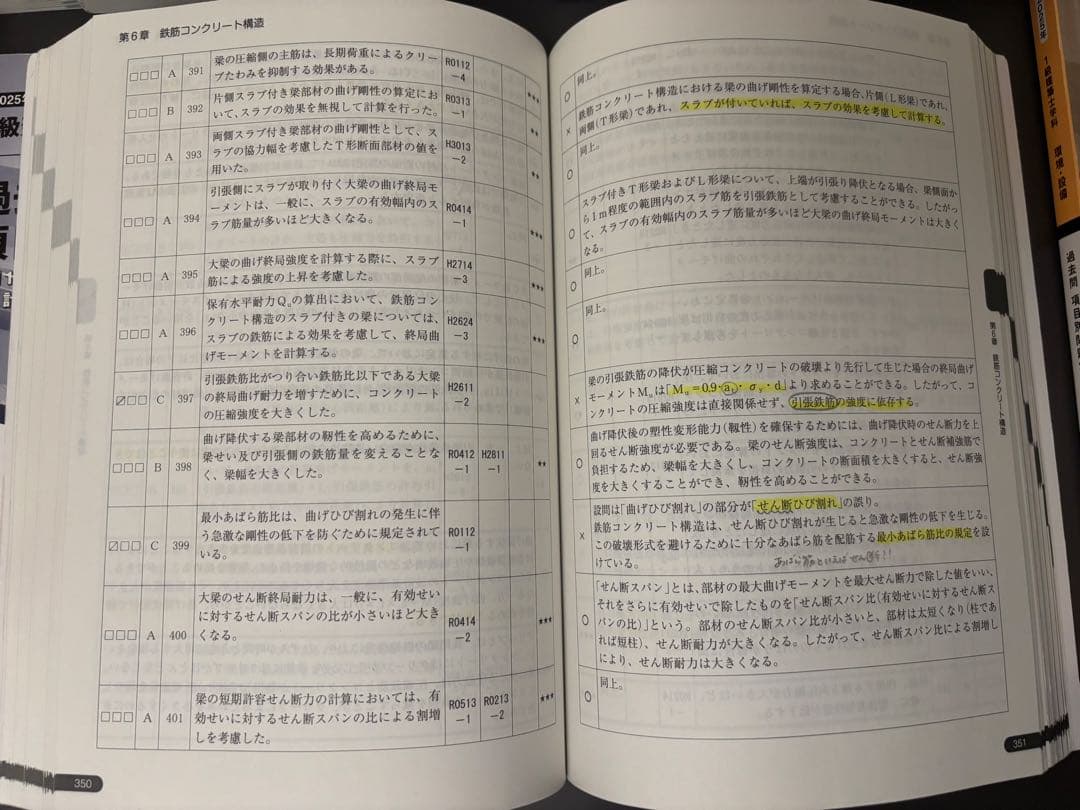 第6章 鉄筋コンクリート構造
□□□ A 391
梁の圧縮側の主筋は、長期荷重によるクリー
プたわみを抑制する効果がある。
R0112
-4
★★★
□□□ B 392
片側スラブ付き梁部材の曲げ剛性の算定にお
いて、スラブの効果を無視して計算を行った。
R0313
-1
★★
□□□ A 393
両側スラブ付き梁部材の曲げ剛性として、ス
ラブの協力幅を考慮したT形断面部材の値を
用いた。
H3013
-2
★★
□□□ A 394
引張側にスラブが取り付く大梁の曲げ終局モ
ーメントは、一般に、スラブの有効幅内のス
ラブ筋量が多いほど大きくなる。
R0414
-1
★★★
□□□ A 395
大梁の曲げ終局強度を計算する際に、スラブ
筋による強度の上昇を考慮した。
H2714
-3
★★★
□□□ A 396
保有水平耐力Quの算出において、鉄筋コン
クリート構造のスラブ付きの梁については、
スラブの鉄筋による効果を考慮して、終局曲
げモーメントを計算する。
H2624
-3
★★★
☑□□ C 397
引張鉄筋比がつり合い鉄筋比以下である大梁
の終局曲げ耐力を増すために、コンクリート
の圧縮強度を大きくした。
H2611
-2
□□□ B 398
曲げ降伏する梁部材の靭性を高めるために、
梁せい及び引張側の鉄筋量を変えることな
く、梁幅を大きくした。
R0412
-1
H2811
-1
★★
☑□□ C 399
最小あばら筋比は、曲げひび割れの発生に伴
う急激な剛性の低下を防ぐために規定されて
いる。
R0112
-1
□□□ A 400
大梁のせん断終局耐力は、一般に、有効せい
に対するせん断スパンの比が小さいほど大き
くなる。
R0414
-2
★★★
□□□ A 401
梁の短期許容せん断力の計算においては、有
効せいに対するせん断スパンの比による割増
しを考慮した。
R0513
-1
R0213
-2
★★★
350
○
同上。
×
鉄筋コンクリート構造における梁の曲げ剛性を算定する場合、片側(L形梁)であれ、
両側(T形梁)であれ、スラブが付いていれば、スラブの効果を考慮して計算する。
○
同上。
○
スラブ付きT形梁およびL形梁について、上端が引張り降伏となる場合、梁側面か
ら1m程度の範囲内のスラブ筋を引張鉄筋として考慮することができる。したがっ
て、スラブの有効幅内のスラブ筋量が多いほど大梁の曲げ終局モーメントは大きく
なる。
○
同上。
○
同上。
×
梁の引張鉄筋の降伏が圧縮コンクリートの破壊より先行して生じた場合の終局曲げ
モーメントMuは「Mu=0.9・at・σy・d」より求めることができる。したがって、コ
ンクリートの圧縮強度は直接関係せず、引張鉄筋の強度に依存する。
○
曲げ降伏後の塑性変形能力(靭性)を確保するためには、曲げ降伏時のせん断力を上
回るせん断強度が必要である。梁のせん断強度は、コンクリートとせん断補強筋で
負担するため、梁幅を大きくし、コンクリートの断面積を大きくすると、せん断強
度を大きくすることができ、靭性を高めることができる。
×
設問は「曲げひび割れ」の部分が「せん断ひび割れ」の誤り。
鉄筋コンクリート構造は、せん断ひび割れが生じると急激な剛性の低下を生じる。
この破壊形式を避けるために十分なあばら筋を配筋する最小あばら筋比の規定を設
けている。
あばら筋といえばせん断!!
○
「せん断スパン」とは、部材の最大曲げモーメントを最大せん断力で除した値をいい、
それをさらに有効せいで除したものを「せん断スパン比(有効せいに対するせん断ス
パンの比)」という。部材のせん断スパン比が小さいと、部材は太短くなり(柱であ
れば短柱)、せん断耐力が大きくなる。したがって、せん断スパン比による割増し
により、せん断耐力は大きくなる。
○
同上。
第6章 鉄筋コンクリート構造
351
2025年
1級建築士学科
環境・設備
過去問
項目別問
2025年
級